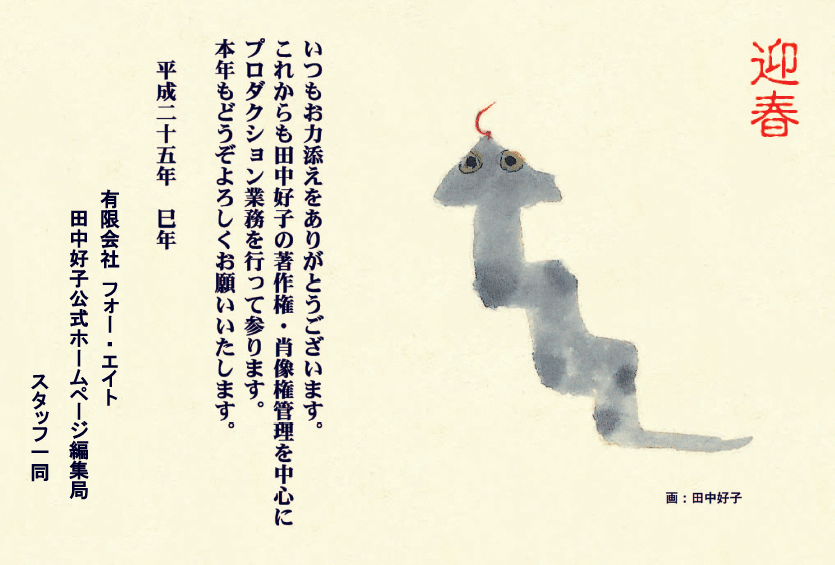 迎春
いつもお力添えをありがとうございます。
これからも田中好子の著作権・肖像権管理を中心に
プロダクション業務を行って参ります。
本年もどうぞよろしくお願いいたします。
平成二十五年　巳年
有限会社 フォー・エイト
田中好子公式ホームページ編集局
スタッフ一同
画：田中好子